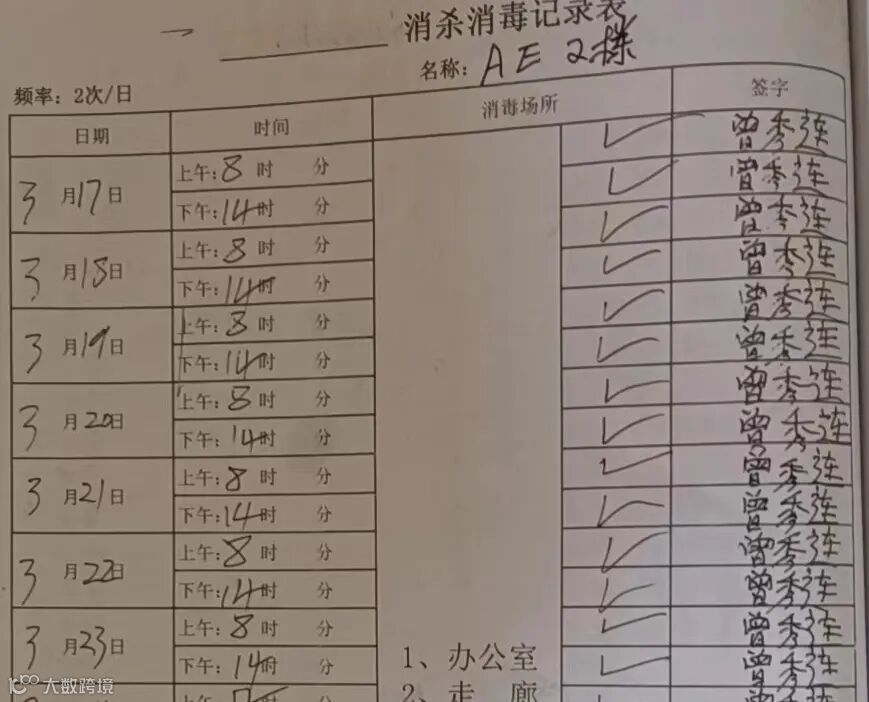 消杀消毒记录表
名称: AE 2栋
频率: 2次/日
日期 时间 消毒场所 签字
3月17日 上午: 8时 分 ✓ 曾秀连
下午: 14时 分 ✓ 曾秀连
3月18日 上午: 8时 分 ✓ 曾秀连
下午: 14时 分 ✓ 曾秀连
3月19日 上午: 8时 分 ✓ 曾秀连
下午: 14时 分 ✓ 曾秀连
3月20日 上午: 8时 分 ✓ 曾秀连
下午: 14时 分 ✓ 曾秀连
3月21日 上午: 8时 分 ✓ 曾秀连
下午: 14时 分 ✓ 曾秀连
3月22日 上午: 8时 分 ✓ 曾秀连
下午: 14时 分 ✓ 曾秀连
3月23日 上午: 8时 分 ✓ 曾秀连
下午: 14时 分 ✓ 曾秀连
1、办公室
2、走 廊
大数跨境